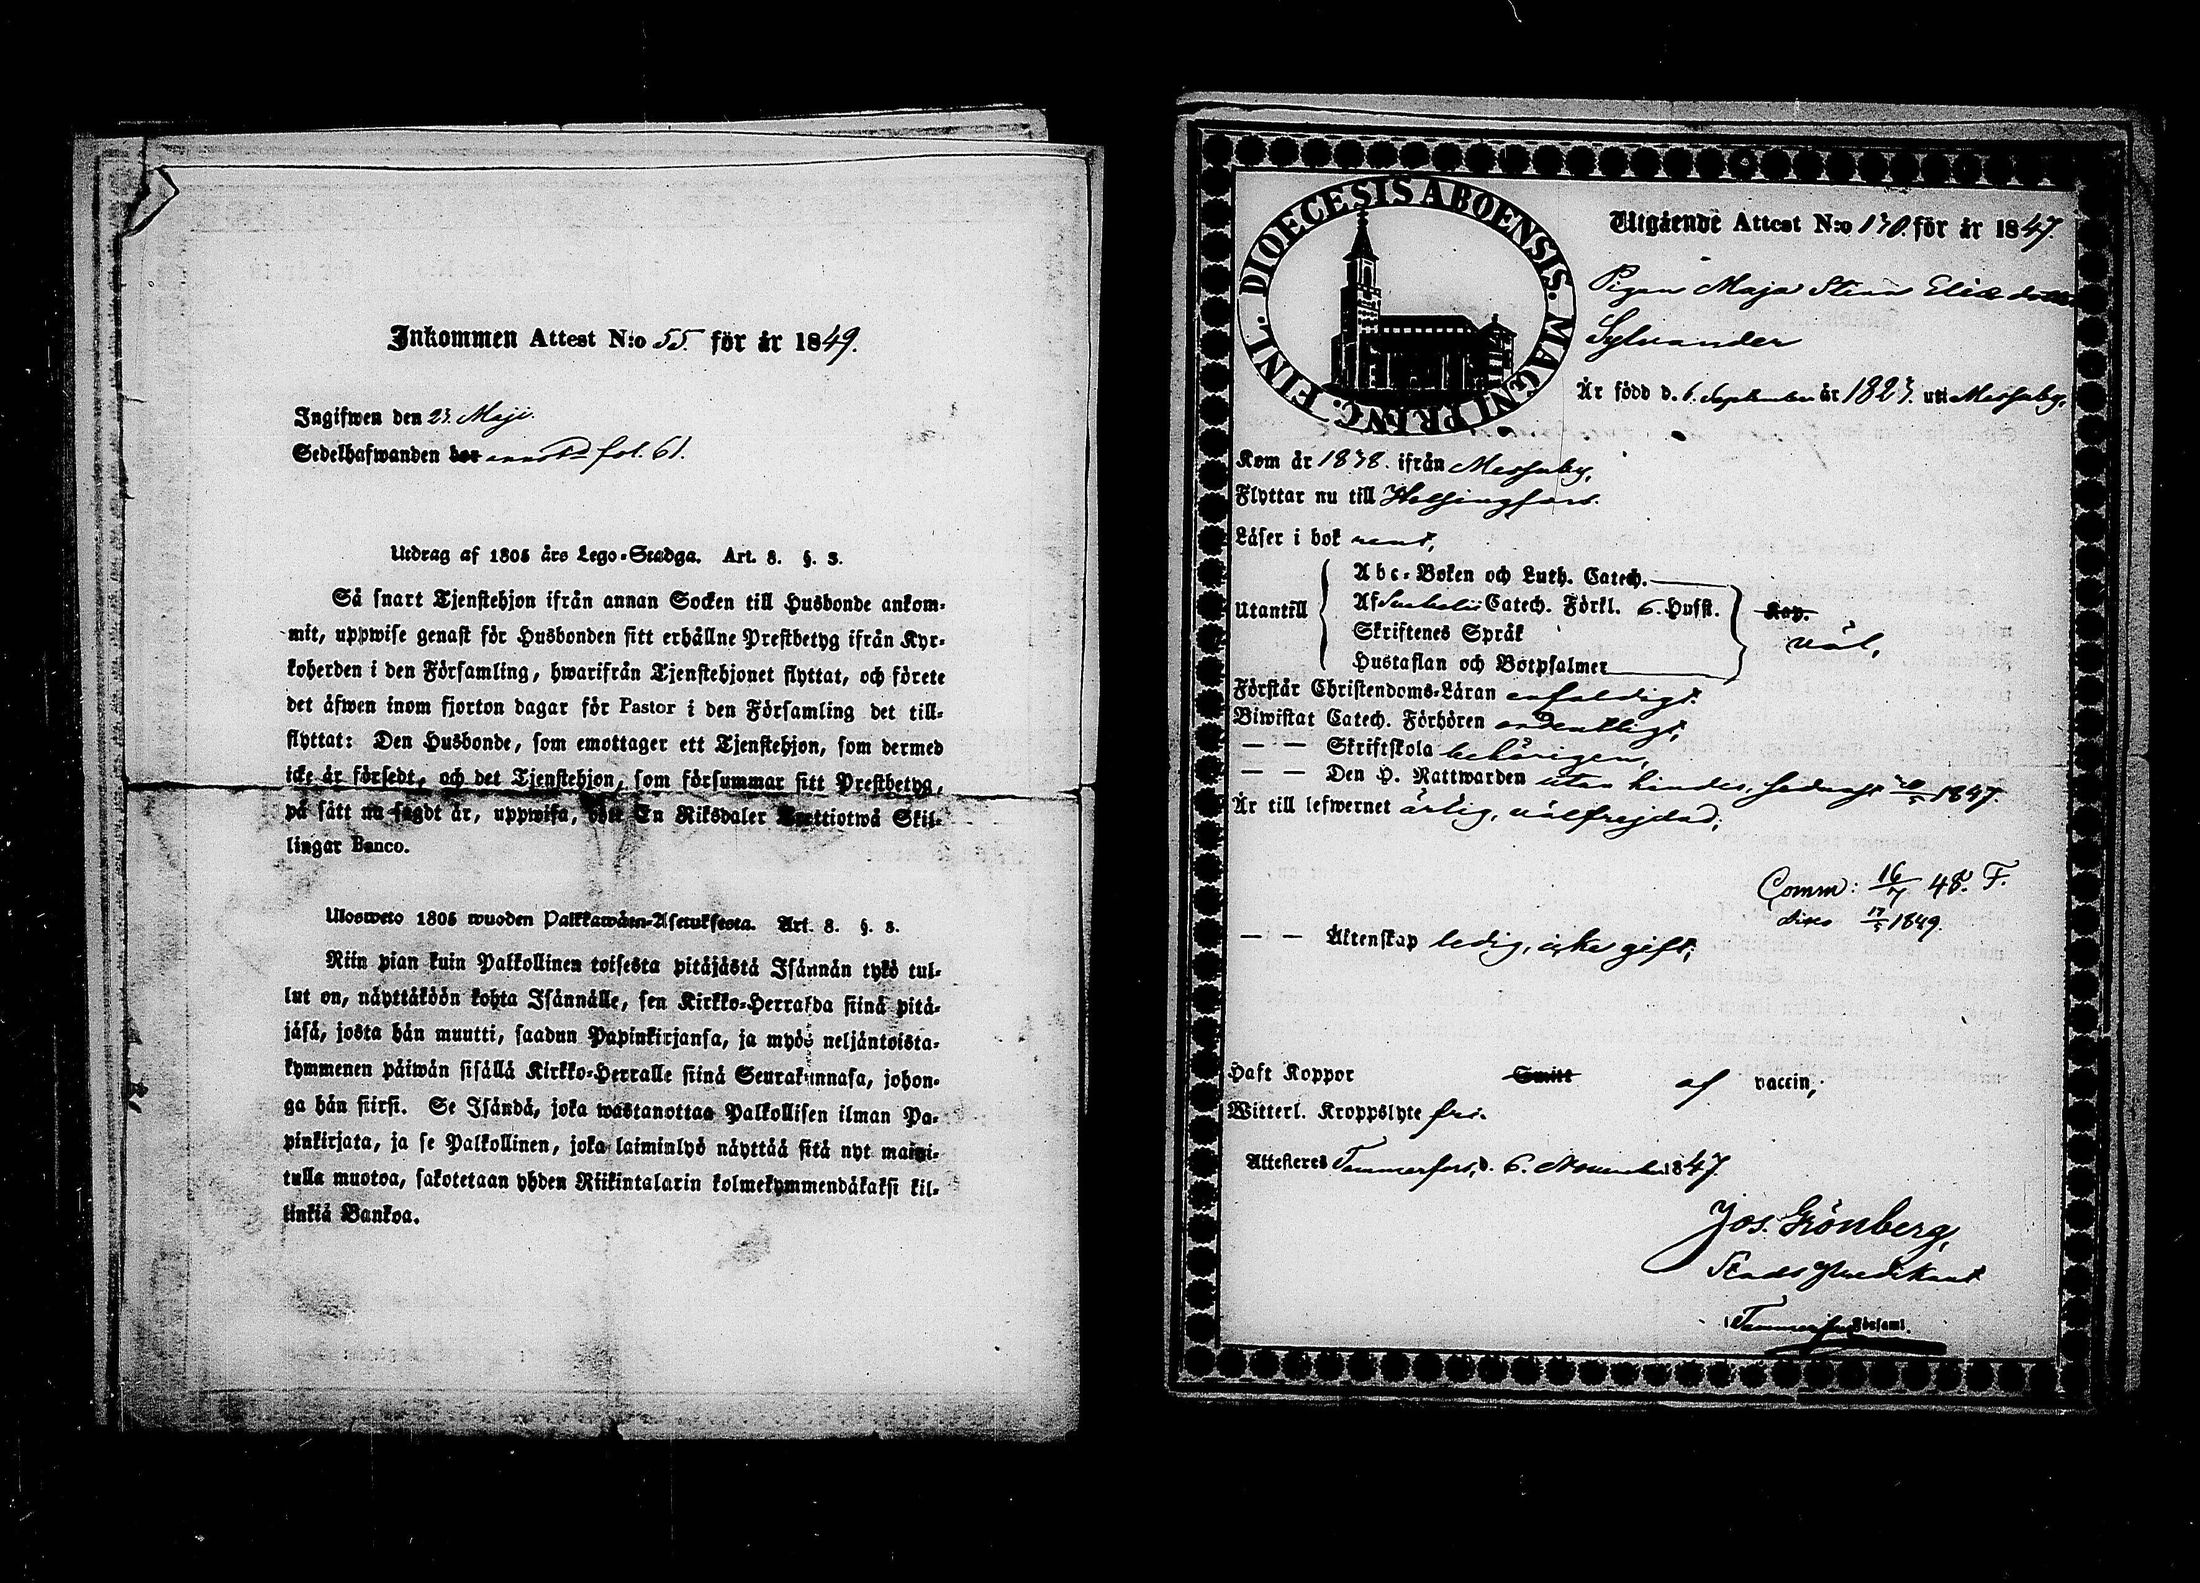 Inkommen Attest N:o 55. för år 1849.
Ingifwen den 23. Maji.
Sedelhafwanden bor annot. fol. 61.
Utdrag af 1805 års Lego-Stadga. Art. 8. §. 3.
Så snart Tjenstehjon ifrån annan Socken till Husbonde ankom-
mit, uppwise genast för Husbonden sitt erhållne Prestbetyg ifrån Kyr-
koherden i den Församling, hwarifrån Tjenstehjonet flyttat, och förete
det äfwen inom fjorton dagar för Pastor i den Församling det till-
flyttat: Den Husbonde, som emottager ett Tjenstehjon, som dermed
icke är försedt, och det Tjenstehjon, som försummar sitt Prestbetyg,
på sätt nu sagdt är, uppwisa, böte En Riksdaler Trettiotwå Skil-
lingar Banco.
Ulosweto 1805 wuoden Palkkawäen-Asetuksesta. Art. 8. §. 3.
Niin pian kuin Palkollinen toisesta pitäjästä Isännän tykö tul-
lut on, näyttäköön kohta Isännälle, sen Kirkko-Herralda siinä pitä-
jäsä, josta hän muutti, saadun Papinkirjansa, ja myös neljäntoista-
kymmenen päiwän sisällä Kirkko-Herralle siinä Seurakunnasa, johon-
ga hän siirsi. Se Isändä, joka wastanottaa Palkollisen ilman Pa-
pinkirjata, ja se Palkollinen, joka laiminlyö näyttää sitä nyt maini-
tulla muotoa, sakotetaan yhden Riikintalarin kolmekymmendäkaksi kil-
linkiä Bankoa.
DIOECESIS ABOENSIS. MAGNI PRINC. FINL.
Utgående Attest N:o 130. för år 1847.
Pigan Maja Stina Eliædotter
Sylvander
Är född d. 6. September år 1823. uti Messuby,
Kom år 1838. ifrån Messuby,
Flyttar nu till Helsingfors.
Läser i bok rent,
Utantill
Abc-Boken och Luth. Catech.
Af Svebelii Catech. Förkl. 6. Hufst.
Skriftenes Språk
Hustaflan och Botpsalmer
Kap.
väl,
Förstår Christendoms-Läran enfaldigt.
Biwistat Catech. Förhören ordentligt,
— — Skriftskola behörigen,
— — Den H. Nattwarden utan hinder, sednast 20/5 1847.
Är till lefwernet ärlig, välfrejdad;
Comm: 16/7 48. F.
dito 17/5 1849.
— — Äktenskap ledig, icke gift;
Haft Koppor Smitt af vaccin;
Witterl. Kroppslyte fri.
Attesteres Tammerfors, d. 6. November 1847.
Jos. Grönberg,
Stads Predikant
i Tammerfors Församl.